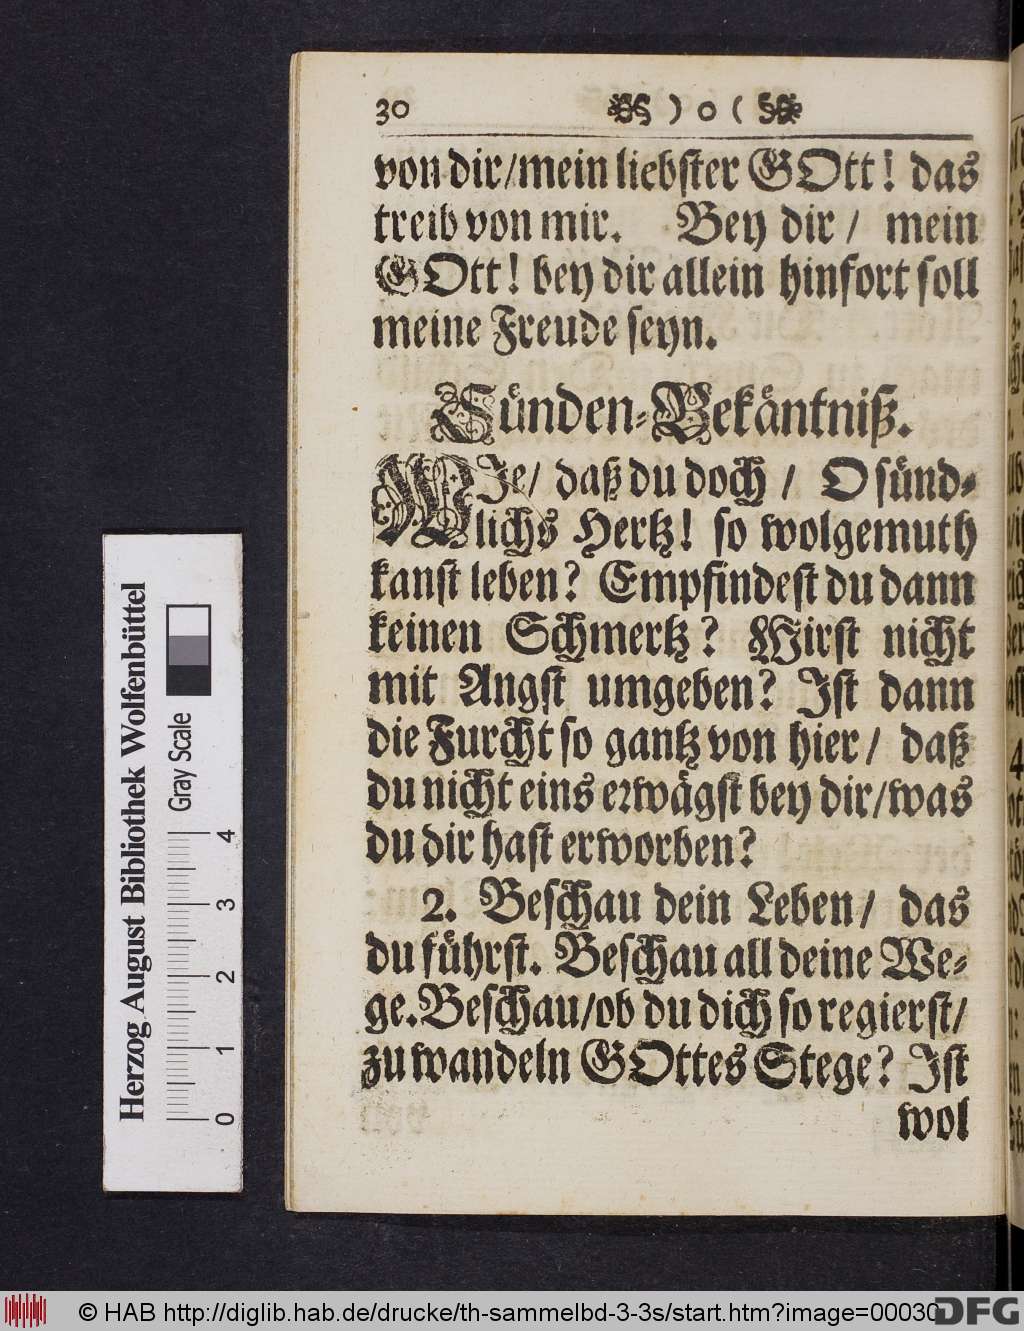 30 ) o (
von dir/mein liebster GOtt! das
treib von mir. Bey dir/ mein
GOtt! bey dir allein hinfort soll
meine Freude seyn.
Sünden-Bekäntniß.
WIe/ daß du doch/ O sünd-
lichs Hertz! so wolgemuth
kanst leben? Empfindest du dann
keinen Schmertz? Wirst nicht
mit Angst umgeben? Ist dann
die Furcht so gantz von hier/ daß
du nicht eins erwägst bey dir/was
du dir hast erworben?
2. Beschau dein Leben/ das
du führst. Beschau all deine We-
ge. Beschau/ob du dich so regierst/
zu wandeln GOttes Stege? Ist
wol
Herzog August Bibliothek Wolfenbüttel
Gray Scale
0 1 2 3 4
© HAB http://diglib.hab.de/drucke/th-sammelbd-3-3s/start.htm?image=00030
DFG